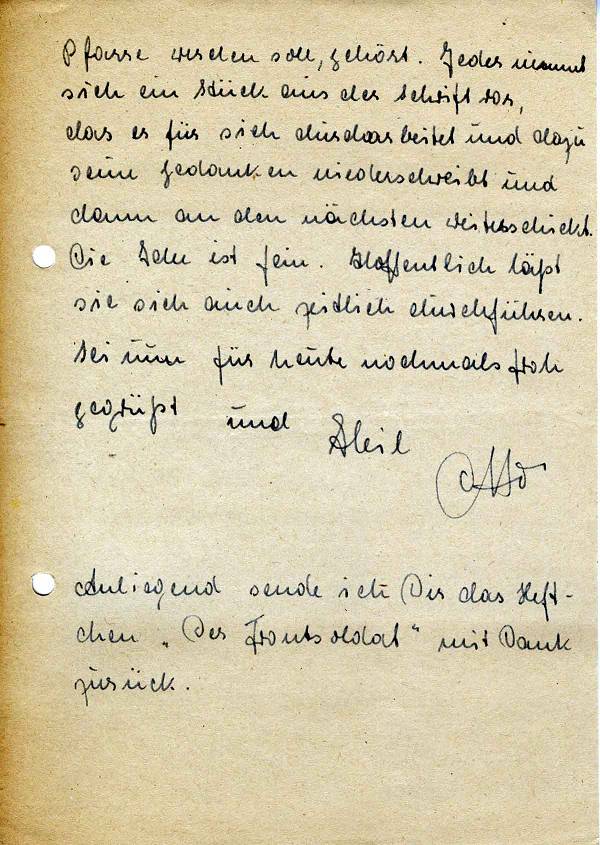 Pfarrer werden soll, gehört. Jeder nimmt
sich ein Stück aus der Schrift vor,
das er für sich durcharbeitet und dazu
seine Gedanken niederschreibt und
dann an den nächsten weiterschickt.
Die Idee ist fein. Hoffentlich läßt
sie sich auch zeitlich durchführen.
Sei nun für heute nochmals froh
gegrüßt und Heil
Otto
Anliegend sende ich Dir das Heft-
chen „Der Frontsoldat“ mit Dank
zurück.